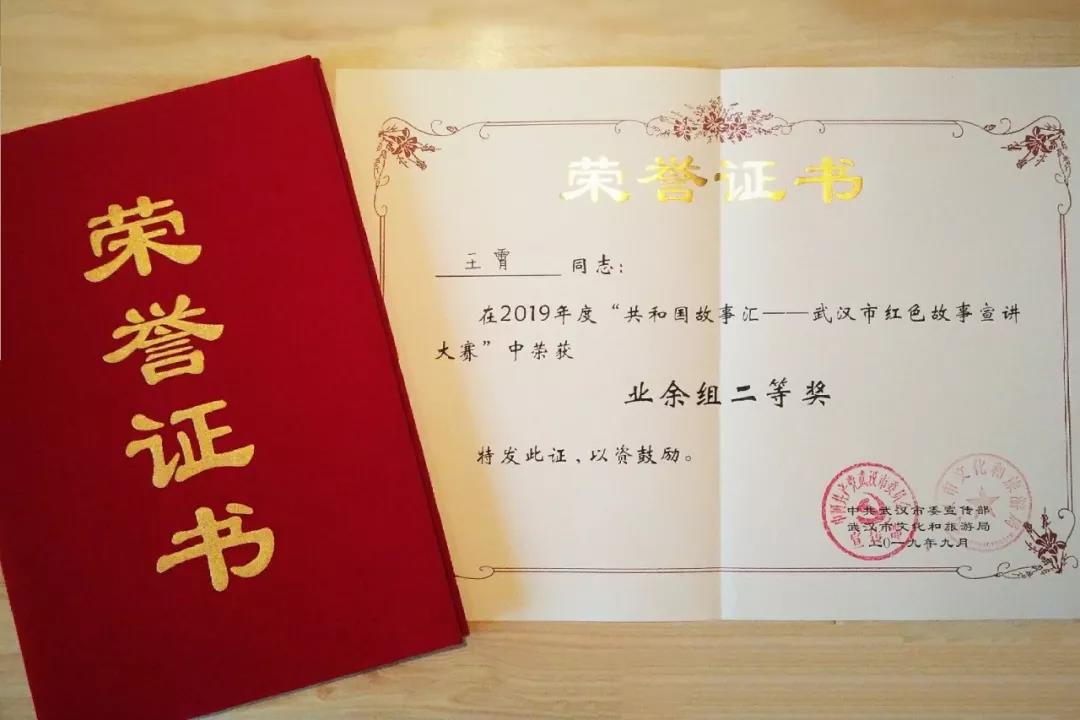 荣誉证书
荣誉证书
王霄 同志：
在2019年度“共和国故事汇——武汉市红色故事宣讲
大赛”中荣获
业余组二等奖
特发此证，以资鼓励。
中共武汉市委宣传部
武汉市文化和旅游局
二0一九年九月
中国共产党武汉市委员会
宣传部
市文化和旅游局